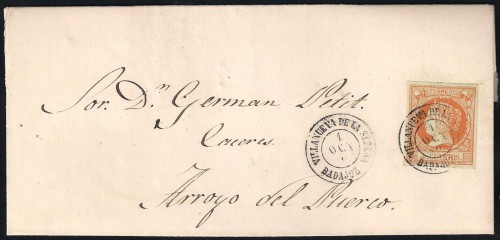 Sor. D.n German Petit.
Caceres.
Arroyo del Puerco.
VILLANUEVA DE LA SERENA
1
OCT
BADAJOZ
CORREOS
VILLANUEVA DE LA
BADAJOZ